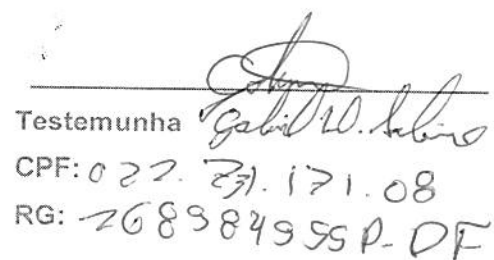 Testemunha Gabriel W. Sabino
CPF: 022. 731. 171. 08
RG: 2689849 SSP-DF